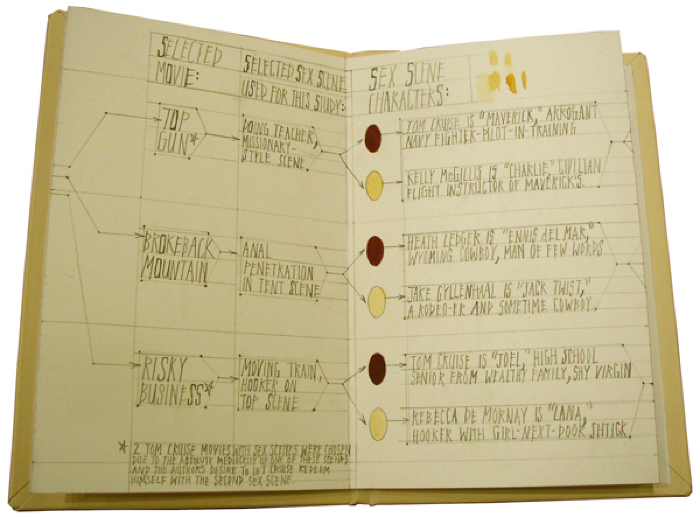 SELECTED
MOVIE:
SELECTED SEX SCENE
USED FOR THIS STUDY:
SEX SCENE
CHARACTERS:
TOP
GUN*
DOING TEACHER,
MISSIONARY-
STYLE SCENE
TOM CRUISE IS "MAVERICK," ARROGANT
NAVY FIGHTER-PILOT-IN-TRAINING
KELLY McGILLIS IS "CHARLIE," CIVILIAN
FLIGHT INSTRUCTOR OF MAVERICK'S.
BROKEBACK
MOUNTAIN
ANAL
PENETRATION
IN TENT SCENE
HEATH LEDGER IS "ENNIS del MAR,"
WYOMING COWBOY, MAN OF FEW WORDS
JAKE GYLLENHAAL IS "JACK TWIST,"
A RODEO-ER AND SOMETIME COWBOY.
RISKY
BUSINESS*
MOVING TRAIN,
HOOKER ON
TOP SCENE
TOM CRUISE IS "JOEL," HIGH SCHOOL
SENIOR FROM WEALTHY FAMILY, SHY VIRGIN
REBECCA DE MORNAY IS "LANA,"
HOOKER WITH GIRL-NEXT-DOOR SHTICK.
* 2 TOM CRUISE MOVIES WITH SEX SCENES WERE CHOSEN
DUE TO THE ABSOLUTE MEDIOCRITY OF ONE OF THESE SCENES
AND THE AUTHOR'S DESIRE TO LET CRUISE REDEEM
HIMSELF WITH THE SECOND SEX SCENE.